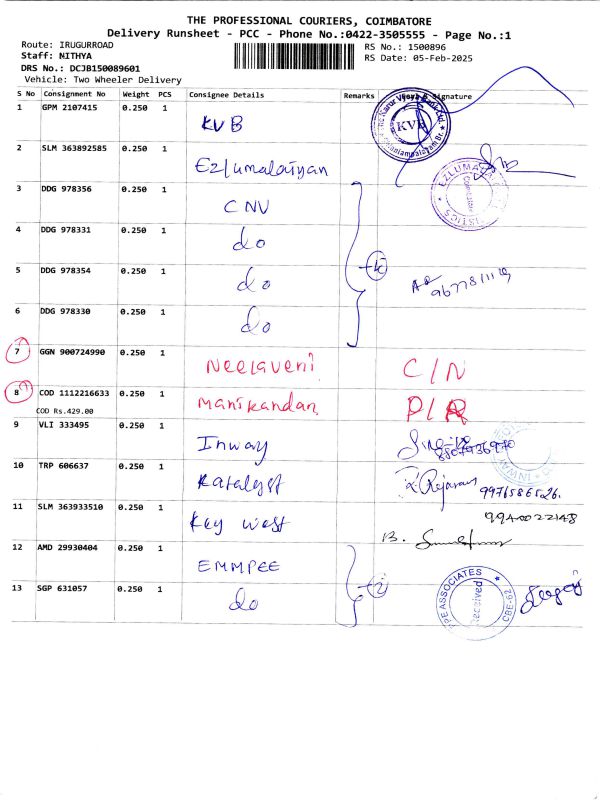 THE PROFESSIONAL COURIERS, COIMBATORE
Delivery Runsheet - PCC - Phone No.:0422-3505555 - Page No.:1
Route: IRUGURROAD
RS No.: 1500896
Staff: NITHYA
RS Date: 05-Feb-2025
DRS No.: DCJB150089601
Vehicle: Two Wheeler Delivery
S No Consignment No Weight PCS Consignee Details Remarks Signature
1 GPM 2107415 0.250 1 KVB
KVB
2 SLM 363892585 0.250 1 Ezlumalaiyan
EZLUMA
Coimbatore
3 DDG 978356 0.250 1 CNV
4 DDG 978331 0.250 1 do
5 DDG 978354 0.250 1 do
6 DDG 978330 0.250 1 do
7 GGN 900724990 0.250 1 Neelaveni C/N
8 COD 1112216633 0.250 1 Manikandan
COD Rs.429.00
9 VLI 333495 0.250 1 Inway
10 TRP 606637 0.250 1 Katalyst
9976586526.
11 SLM 363933510 0.250 1 Key west 9940022148
B.
12 AMD 29930404 0.250 1 EMMPEE
13 SGP 631057 0.250 1 do
ASSOCIATES
Received
CBE-62